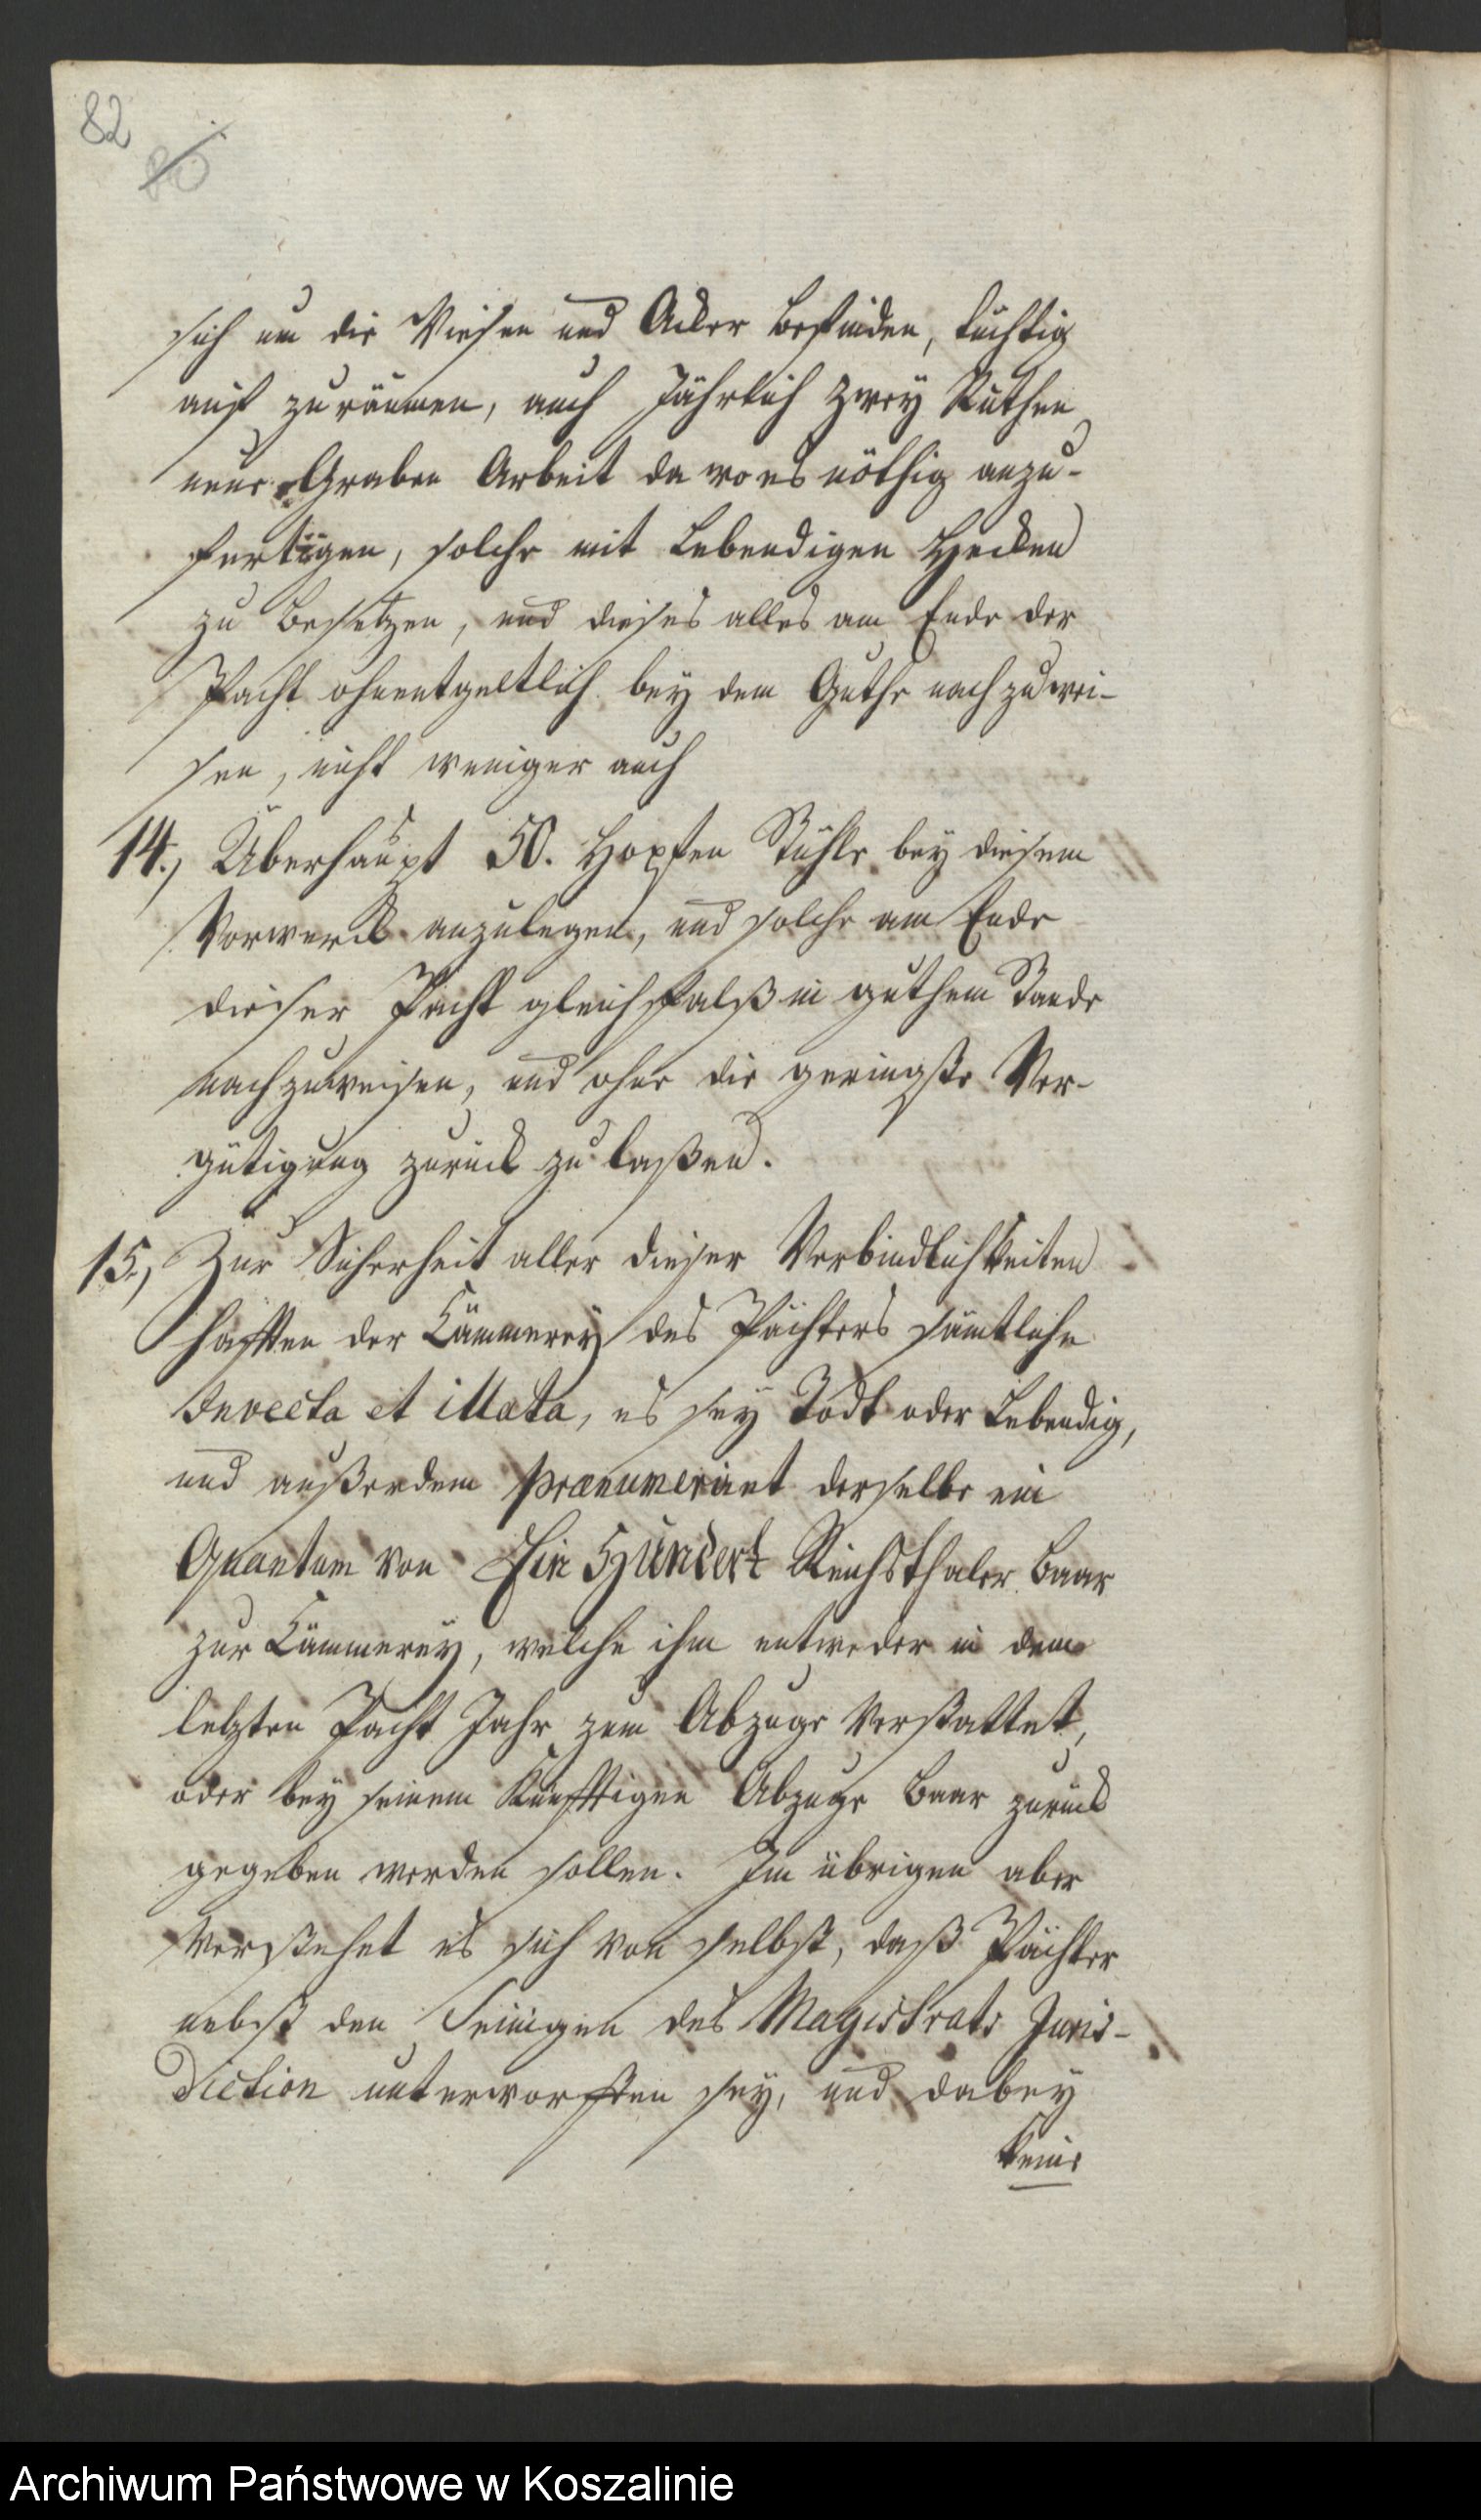 82
80
sich um die Wiesen und Acker befinden, tüchtig
auf zu räumen, auch Jährlich zwey Ruthen
neue Graben Arbeit da wo es nöthig anzu-
fertigen, solche mit Lebendigen Hecken
zu besetzen, und dieses alles am Ende der
Pacht ohnentgeltlich bey dem Guthe nachzuwei-
sen, nicht weniger auch
14., Überhaupt 50. Hopfen Stühle bey diesem
Vorwerck anzulegen, und solche am Ende
dieser Pacht gleichfalß in guthem Stande
nachzuweisen, und ohne die geringste Ver-
gütigung zurück zu laßen.
15., Zur Sicherheit aller dieser Verbindlichkeiten
hafften der Cämmerey des Pächters sämtliche
Invecta et illata, es sey Todt oder Lebendig,
und außerdem praenumeriret derselbe ein
Quantum von Ein Hundert Reichsthaler baar
zur Cämmerey, welche ihm entweder in dem
letzten Pacht Jahr zum Abzuge verstattet,
oder bey seinem Künfftigen Abzuge baar zurück
gegeben werden sollen. Im übrigen aber
verstehet es sich von selbst, daß Pächter
nebst den Seinigen des Magistrats Juris-
diction unterworffen sey, und dabey
keine
Archiwum Państwowe w Koszalinie